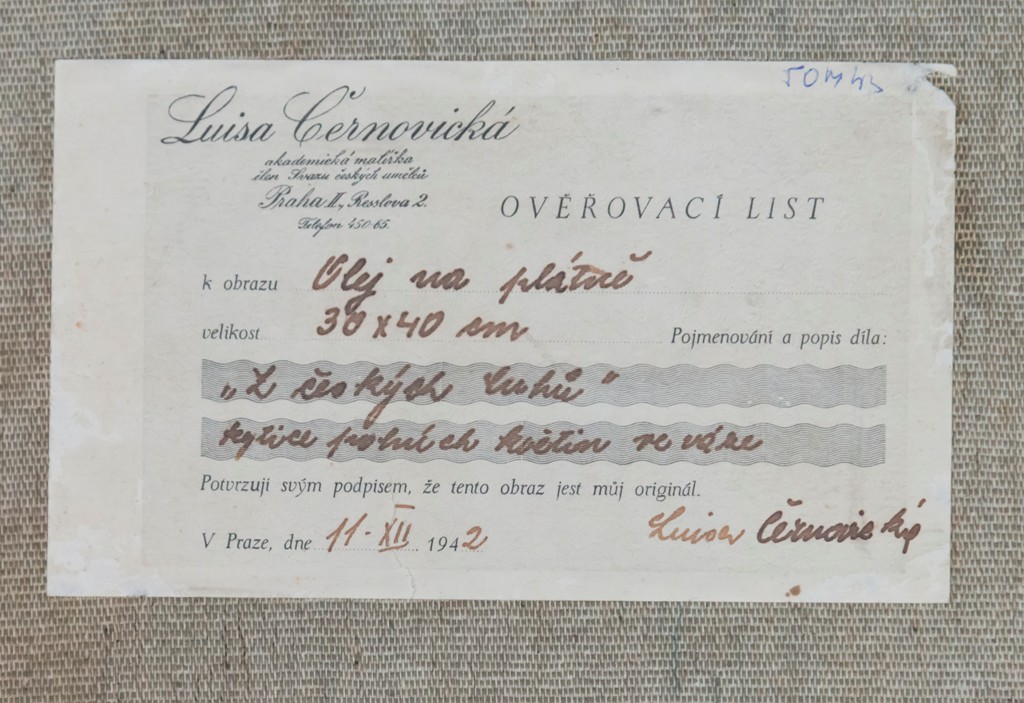 Luisa Černovická
akademická malířka
člen Svazu českých umělců
Praha II., Resslova 2.
Telefon 450-65.
OVĚŘOVACÍ LIST
k obrazu Olej na plátně
velikost 30 x 40 cm Pojmenování a popis díla:
„Z českých luhů"
kytice polních květin ve váze
Potvrzuji svým podpisem, že tento obraz jest můj originál.
V Praze, dne 11. XII 1942 Luisa Černovická